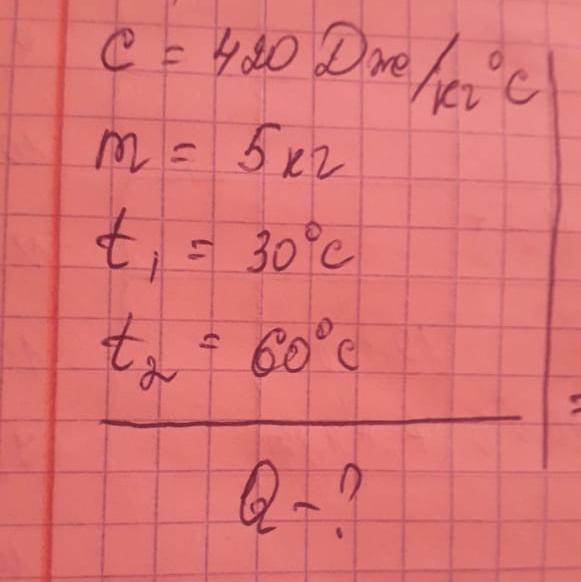 C = 420 Дж/кг°C
m = 5 кг
t₁ = 30°C
t₂ = 60°C
Q - ?